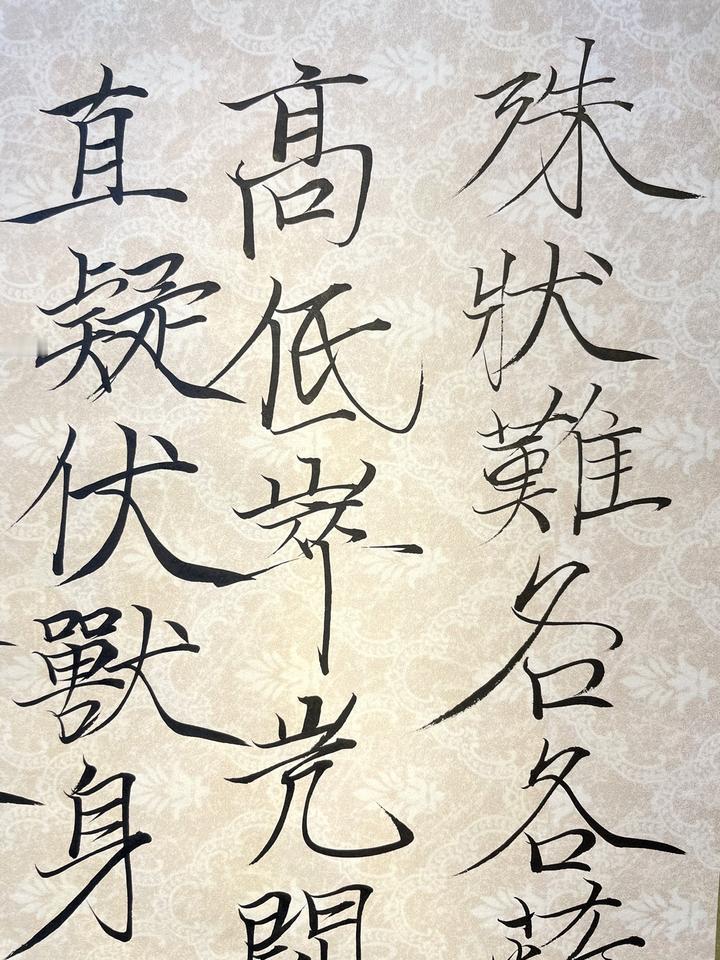 殊狀難名各
高低崒屼
直疑伏獸身